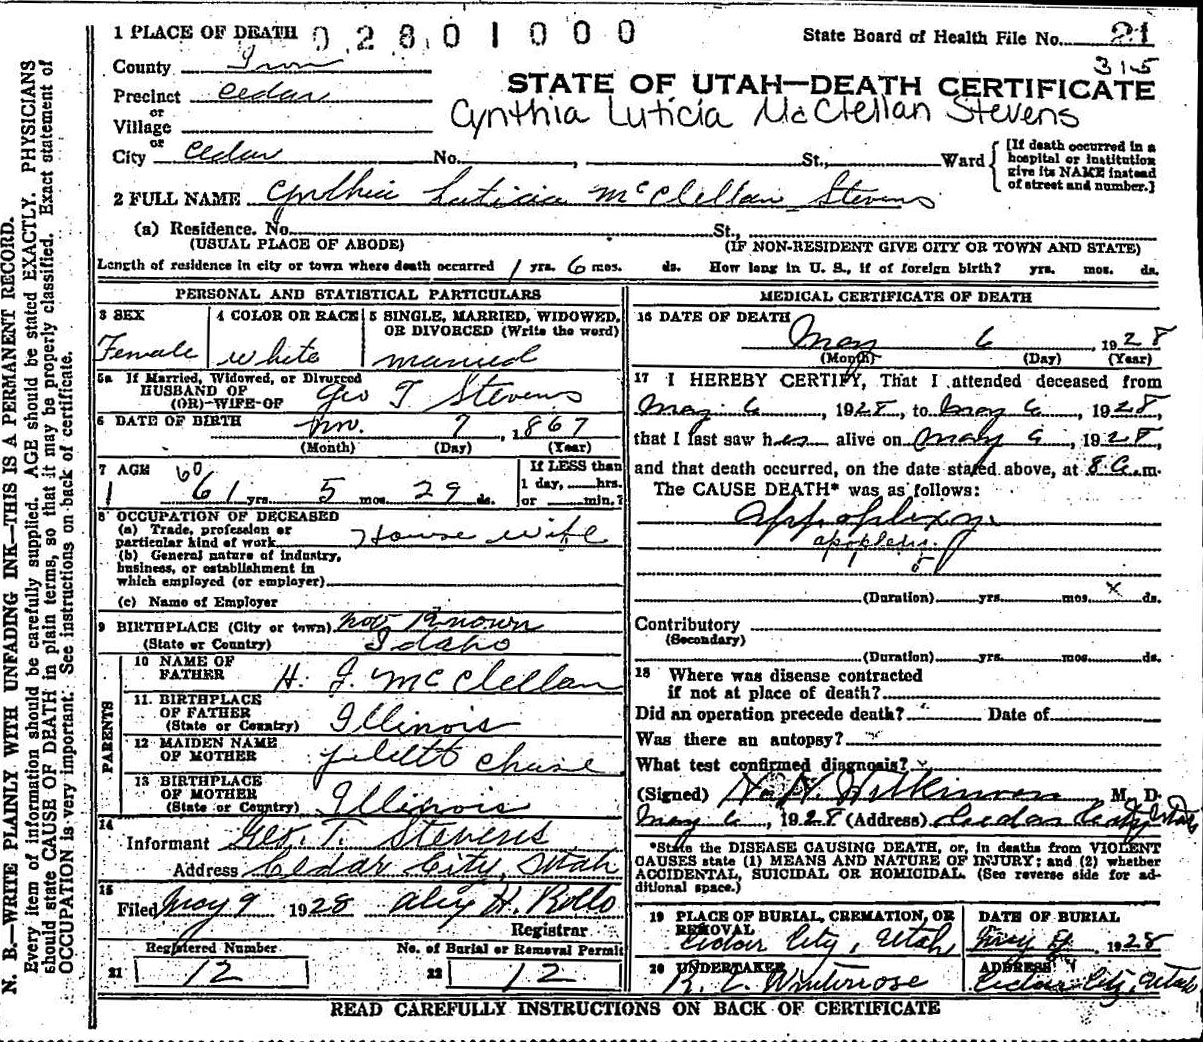 N. B.—WRITE PLAINLY WITH UNFADING INK—THIS IS A PERMANENT RECORD.
Every item of information should be carefully supplied. AGE should be stated EXACTLY. PHYSICIANS
should state CAUSE OF DEATH in plain terms, so that it may be properly classified. Exact statement of
OCCUPATION is very important. See instructions on back of certificate.
1 PLACE OF DEATH 0 2 8 0 1 0 0 0
State Board of Health File No. 21
315
County Iron
STATE OF UTAH—DEATH CERTIFICATE
Precinct Cedar
Cynthia Luticia McClellan Stevens
or
Village
or
City Cedar No. , St., Ward
[If death occurred in a
hospital or institution
give its NAME instead
of street and number.]
2 FULL NAME Cynthia Luticia McClellan Stevens
(a) Residence. No. St.,
(USUAL PLACE OF ABODE) (IF NON-RESIDENT GIVE CITY OR TOWN AND STATE)
Length of residence in city or town where death occurred 1 yrs. 6 mos. ds. How long in U. S., if of foreign birth? yrs. mos. ds.
PERSONAL AND STATISTICAL PARTICULARS
3 SEX
Female
4 COLOR OR RACE
White
5 SINGLE, MARRIED, WIDOWED,
OR DIVORCED (Write the word)
married
5a If Married, Widowed, or Divorced
HUSBAND OF
(OR)-WIFE-OF Geo T Stevens
6 DATE OF BIRTH Nov. 7, 1867
(Month) (Day) (Year)
7 AGE 60
61 yrs. 5 mos. 29 ds.
If LESS than
1 day, hrs.
or min.?
8 OCCUPATION OF DECEASED
(a) Trade, profession or
particular kind of work House wife
(b) General nature of industry,
business, or establishment in
which employed (or employer)
(c) Name of Employer
9 BIRTHPLACE (City or town) not Known
(State or Country) Idaho
PARENTS
10 NAME OF
FATHER H. J. McClellan
11. BIRTHPLACE
OF FATHER
(State or Country) Illinois
12 MAIDEN NAME
OF MOTHER Chase
13 BIRTHPLACE
OF MOTHER
(State or Country) Illinois
14
Informant Geo. T. Stevens
Address Cedar City, Utah
15
Filed May 9 1928 H. Rollo
Registrar
Registered Number
21 12
No. of Burial or Removal Permit
22 12
MEDICAL CERTIFICATE OF DEATH
16 DATE OF DEATH
May 6, 1928
(Month) (Day) (Year)
17 I HEREBY CERTIFY, That I attended deceased from
May 6, 1928, to May 6, 1928,
that I last saw her alive on May 6, 1928,
and that death occurred, on the date stated above, at 8 a.m.
The CAUSE DEATH* was as follows:
Appoplixy
apoplexy
(Duration) yrs. mos. x ds.
Contributory
(Secondary)
(Duration) yrs. mos. ds.
18 Where was disease contracted
if not at place of death?
Did an operation precede death? Date of
Was there an autopsy?
What test confirmed diagnosis?
(Signed) Wilkinson M. D.
May 6, 1928 (Address) Cedar City Utah
*State the DISEASE CAUSING DEATH, or, in deaths from VIOLENT
CAUSES state (1) MEANS AND NATURE OF INJURY; and (2) whether
ACCIDENTAL, SUICIDAL OR HOMICIDAL. (See reverse side for ad-
ditional space.)
19 PLACE OF BURIAL, CREMATION, OR
REMOVAL
Cedar City, Utah
DATE OF BURIAL
May 1928
20 UNDERTAKER
R. C. Winterrose
ADDRESS
Cedar City, Utah
READ CAREFULLY INSTRUCTIONS ON BACK OF CERTIFICATE